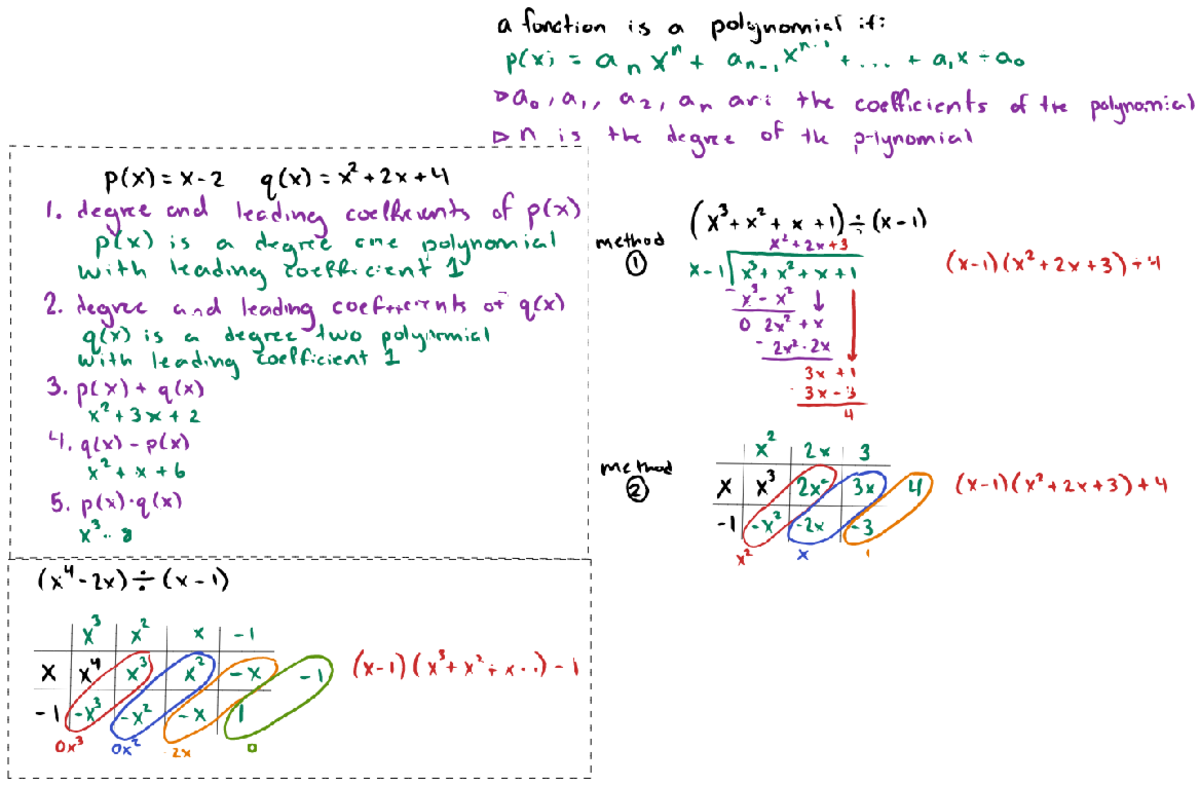 a function is a polynomial if:
p(x) = aₙxⁿ + aₙ₋₁xⁿ⁻¹ + ... + a₁x + a₀
▷ a₀, a₁, a₂, aₙ are the coefficients of the polynomial
▷ n is the degree of the polynomial
p(x) = x-2 q(x) = x² + 2x + 4
1. degree and leading coefficients of p(x)
p(x) is a degree one polynomial
with leading coefficient 1
2. degree and leading coefficients of q(x)
q(x) is a degree two polynomial
with leading coefficient 1
3. p(x) + q(x)
x² + 3x + 2
4. q(x) - p(x)
x² + x + 6
5. p(x)·q(x)
x³ - 8
(x⁴ - 2x) ÷ (x - 1)
x³ x² x -1
x x⁴ x³ x² -x -1
-1 -x³ -x² -x 1
0x³ 0x² -2x 0
(x-1)(x³ + x² + x - 1) - 1
method
①
(x³ + x² + x + 1) ÷ (x - 1)
x² + 2x + 3
x - 1 x³ + x² + x + 1
- x³ - x²
0 2x² + x
- 2x² - 2x
3x + 1
- 3x - 3
4
(x-1)(x² + 2x + 3) + 4
method
②
x² 2x 3
x x³ 2x² 3x 4
-1 -x² -2x -3
x² x 1
(x-1)(x² + 2x + 3) + 4